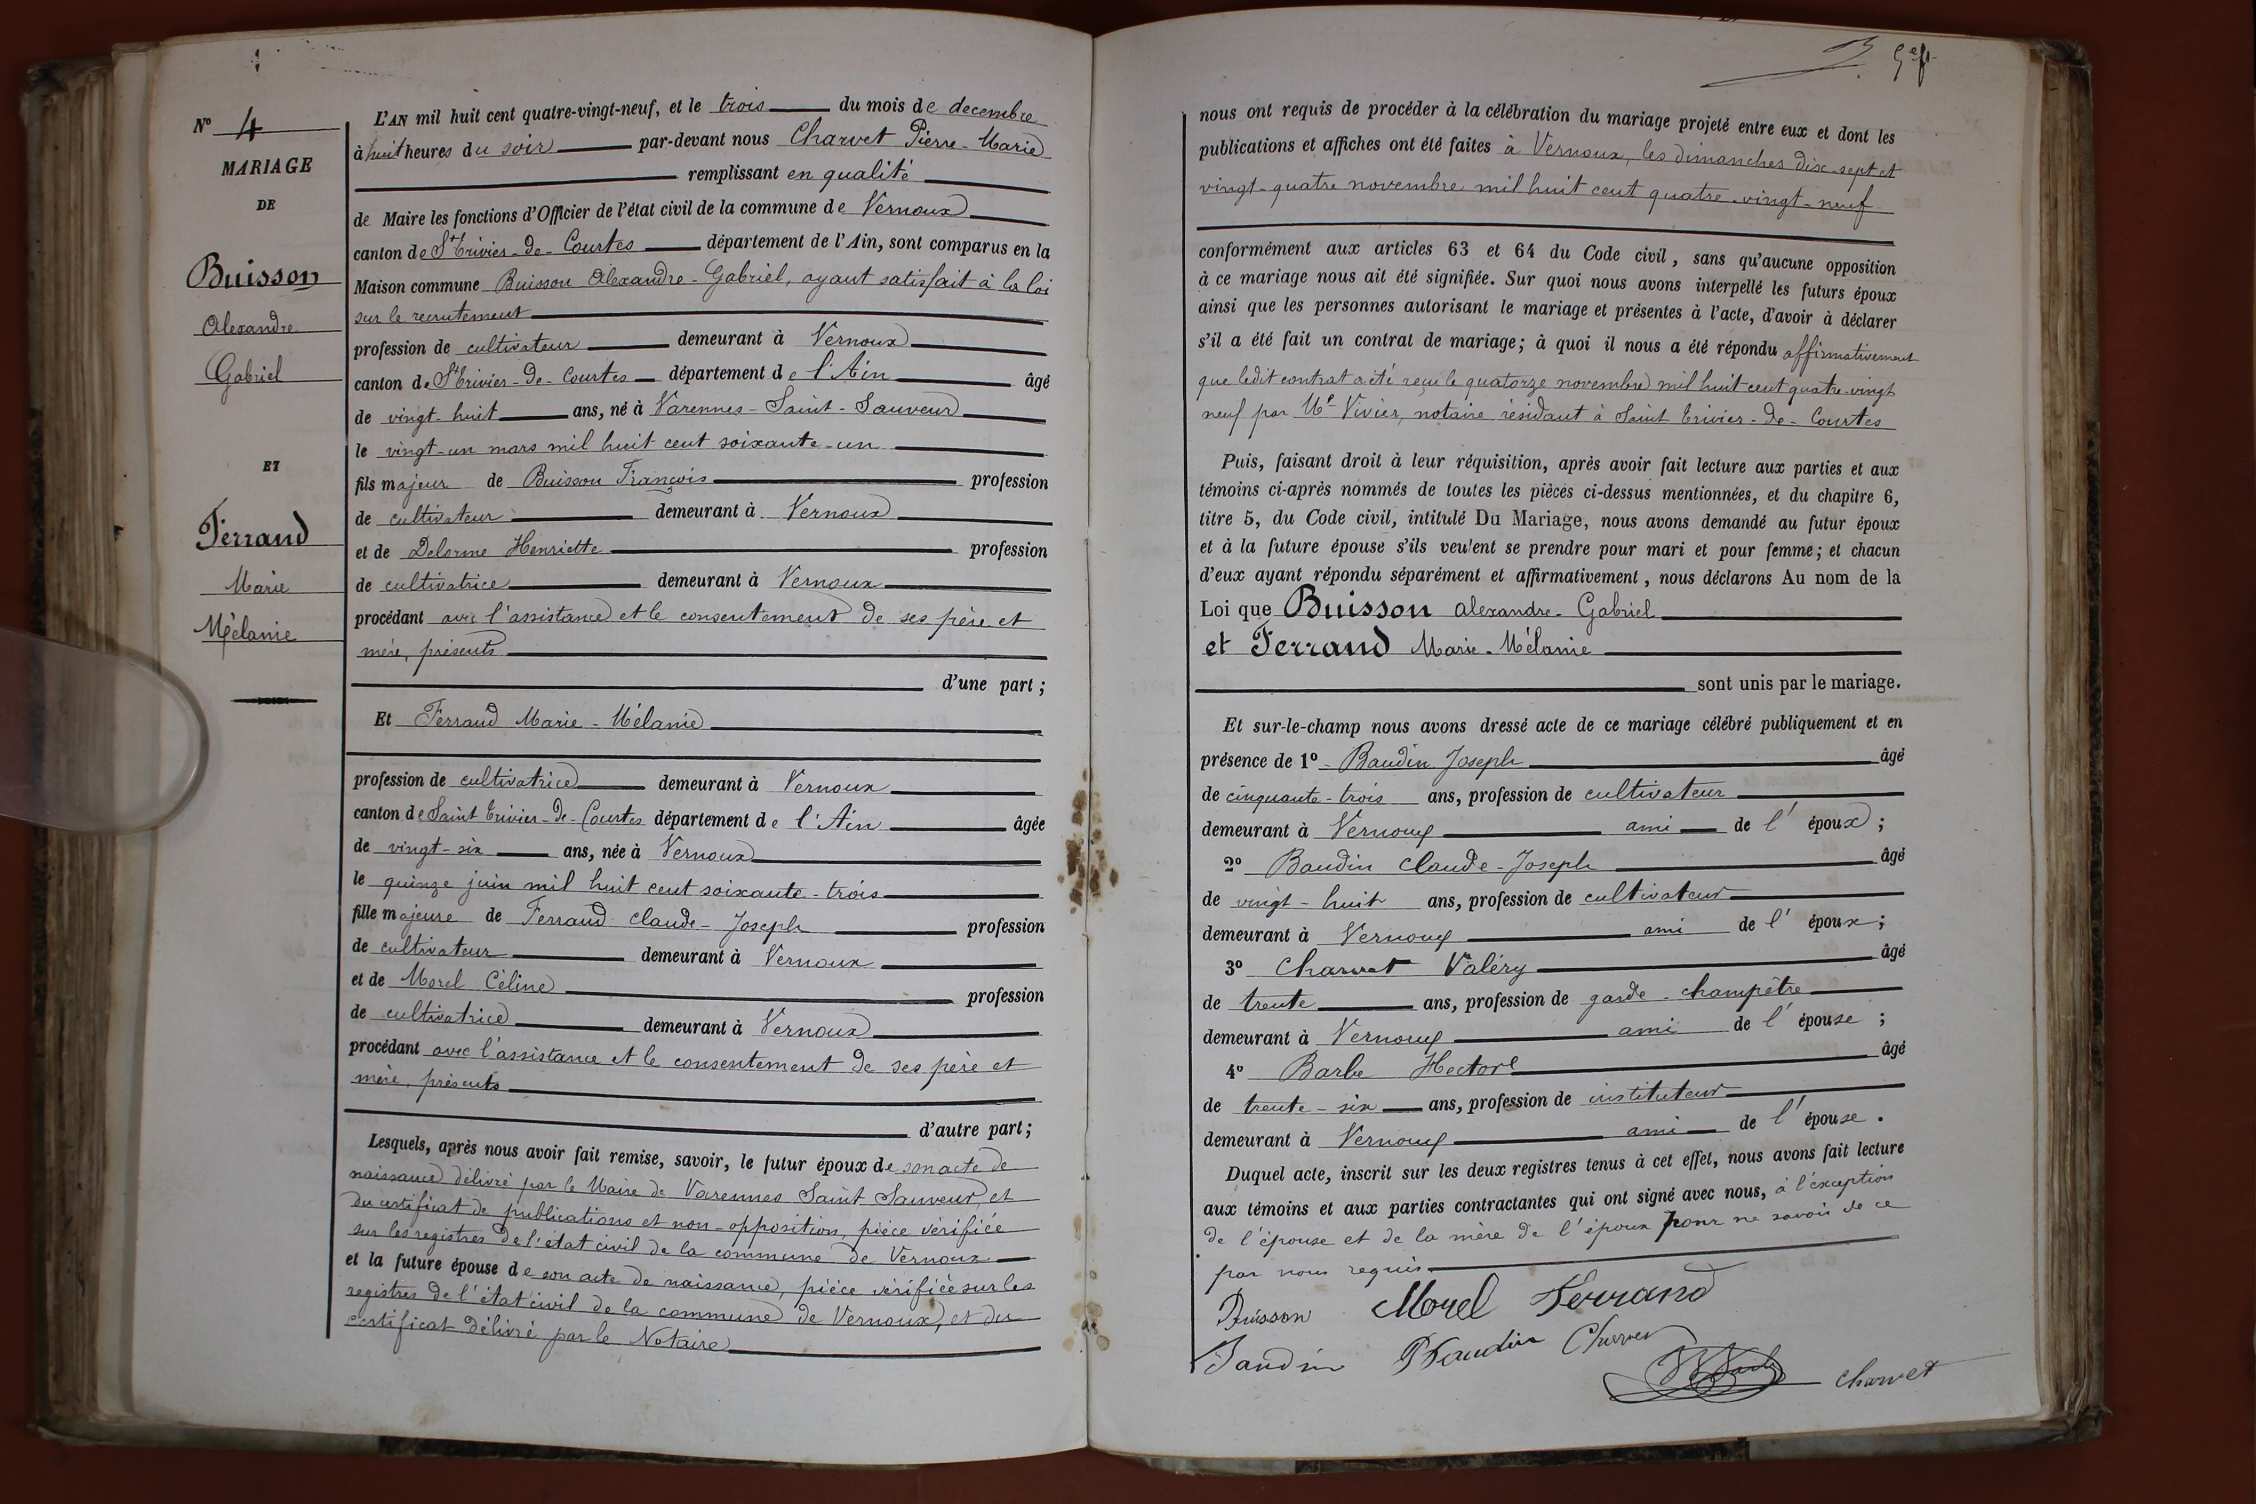 N° 4
MARIAGE
DE
Buisson
Alexandre
Gabriel
ET
Ferrand
Marie
Mélanie
L'AN mil huit cent quatre-vingt-neuf, et le trois du mois de decembre
à huit heures du soir par-devant nous Charvet Pierre-Marie
remplissant en qualité
de Maire les fonctions d'Officier de l'état civil de la commune de Vernoux
canton de St Trivier-de-Courtes département de l'Ain, sont comparus en la
Maison commune Buisson Alexandre-Gabriel, ayant satisfait à la loi
sur le recrutement
profession de cultivateur demeurant à Vernoux
canton de St Trivier-de-Courtes département de l'Ain âgé
de vingt-huit ans, né à Varennes-Saint-Sauveur
le vingt-un mars mil huit cent soixante-un
fils majeur de Buisson François profession
de cultivateur demeurant à Vernoux
et de Delorme Henriette profession
de cultivatrice demeurant à Vernoux
procédant avec l'assistance et le consentement de ses père et
mère, présents
d'une part ;
Et Ferrand Marie-Mélanie
profession de cultivatrice demeurant à Vernoux
canton de Saint Trivier-de-Courtes département de l'Ain âgée
de vingt-six ans, née à Vernoux
le quinze juin mil huit cent soixante-trois
fille majeure de Ferrand Claude-Joseph profession
de cultivateur demeurant à Vernoux
et de Morel Céline profession
de cultivatrice demeurant à Vernoux
procédant avec l'assistance et le consentement de ses père et
mère, présents
d'autre part ;
Lesquels, après nous avoir fait remise, savoir, le futur époux de son acte de
naissance délivré par le Maire de Varennes Saint Sauveur, et
du certificat de publications et non-opposition, pièce vérifiée
sur les registres de l'état civil de la commune de Vernoux
et la future épouse de son acte de naissance, pièce vérifiée sur les
registres de l'état civil de la commune de Vernoux, et du
certificat délivré par le Notaire
nous ont requis de procéder à la célébration du mariage projeté entre eux et dont les
publications et affiches ont été faites à Vernoux, les dimanches dix-sept et
vingt-quatre novembre mil huit cent quatre-vingt-neuf
conformément aux articles 63 et 64 du Code civil, sans qu'aucune opposition
à ce mariage nous ait été signifiée. Sur quoi nous avons interpellé les futurs époux
ainsi que les personnes autorisant le mariage et présentes à l'acte, d'avoir à déclarer
s'il a été fait un contrat de mariage ; à quoi il nous a été répondu affirmativement
que ledit contrat a été reçu le quatorze novembre mil huit cent quatre-vingt
neuf par Me Vivier, notaire résidant à Saint Trivier-de-Courtes
Puis, faisant droit à leur réquisition, après avoir fait lecture aux parties et aux
témoins ci-après nommés de toutes les pièces ci-dessus mentionnées, et du chapitre 6,
titre 5, du Code civil, intitulé Du Mariage, nous avons demandé au futur époux
et à la future épouse s'ils veulent se prendre pour mari et pour femme ; et chacun
d'eux ayant répondu séparément et affirmativement, nous déclarons Au nom de la
Loi que Buisson Alexandre-Gabriel
et Ferrand Marie-Mélanie
sont unis par le mariage.
Et sur-le-champ nous avons dressé acte de ce mariage célébré publiquement et en
présence de 1° Baudin Joseph âgé
de cinquante-trois ans, profession de cultivateur
demeurant à Vernoux ami de l'époux ;
2° Baudin Claude-Joseph âgé
de vingt-huit ans, profession de cultivateur
demeurant à Vernoux ami de l'époux ;
3° Charvet Valéry âgé
de trente ans, profession de garde-champêtre
demeurant à Vernoux ami de l'épouse ;
4° Barbe Hector âgé
de trente-six ans, profession de instituteur
demeurant à Vernoux ami de l'épouse.
Duquel acte, inscrit sur les deux registres tenus à cet effet, nous avons fait lecture
aux témoins et aux parties contractantes qui ont signé avec nous, à l'exception
de l'épouse et de la mère de l'époux pour ne savoir de ce
par nous requis
Buisson Morel Ferrand
Baudin Baudin Charvet
Charvet